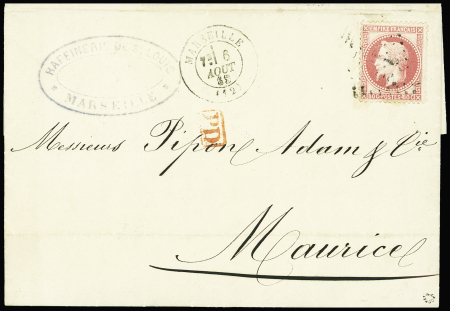 RAFFINERIE DE
MARSEILLE
MARSEILLE
6
AOUT
EMPIRE FRANC
80 POSTES 80
PD
Messieurs Pipon Adam & Cie
Maurice